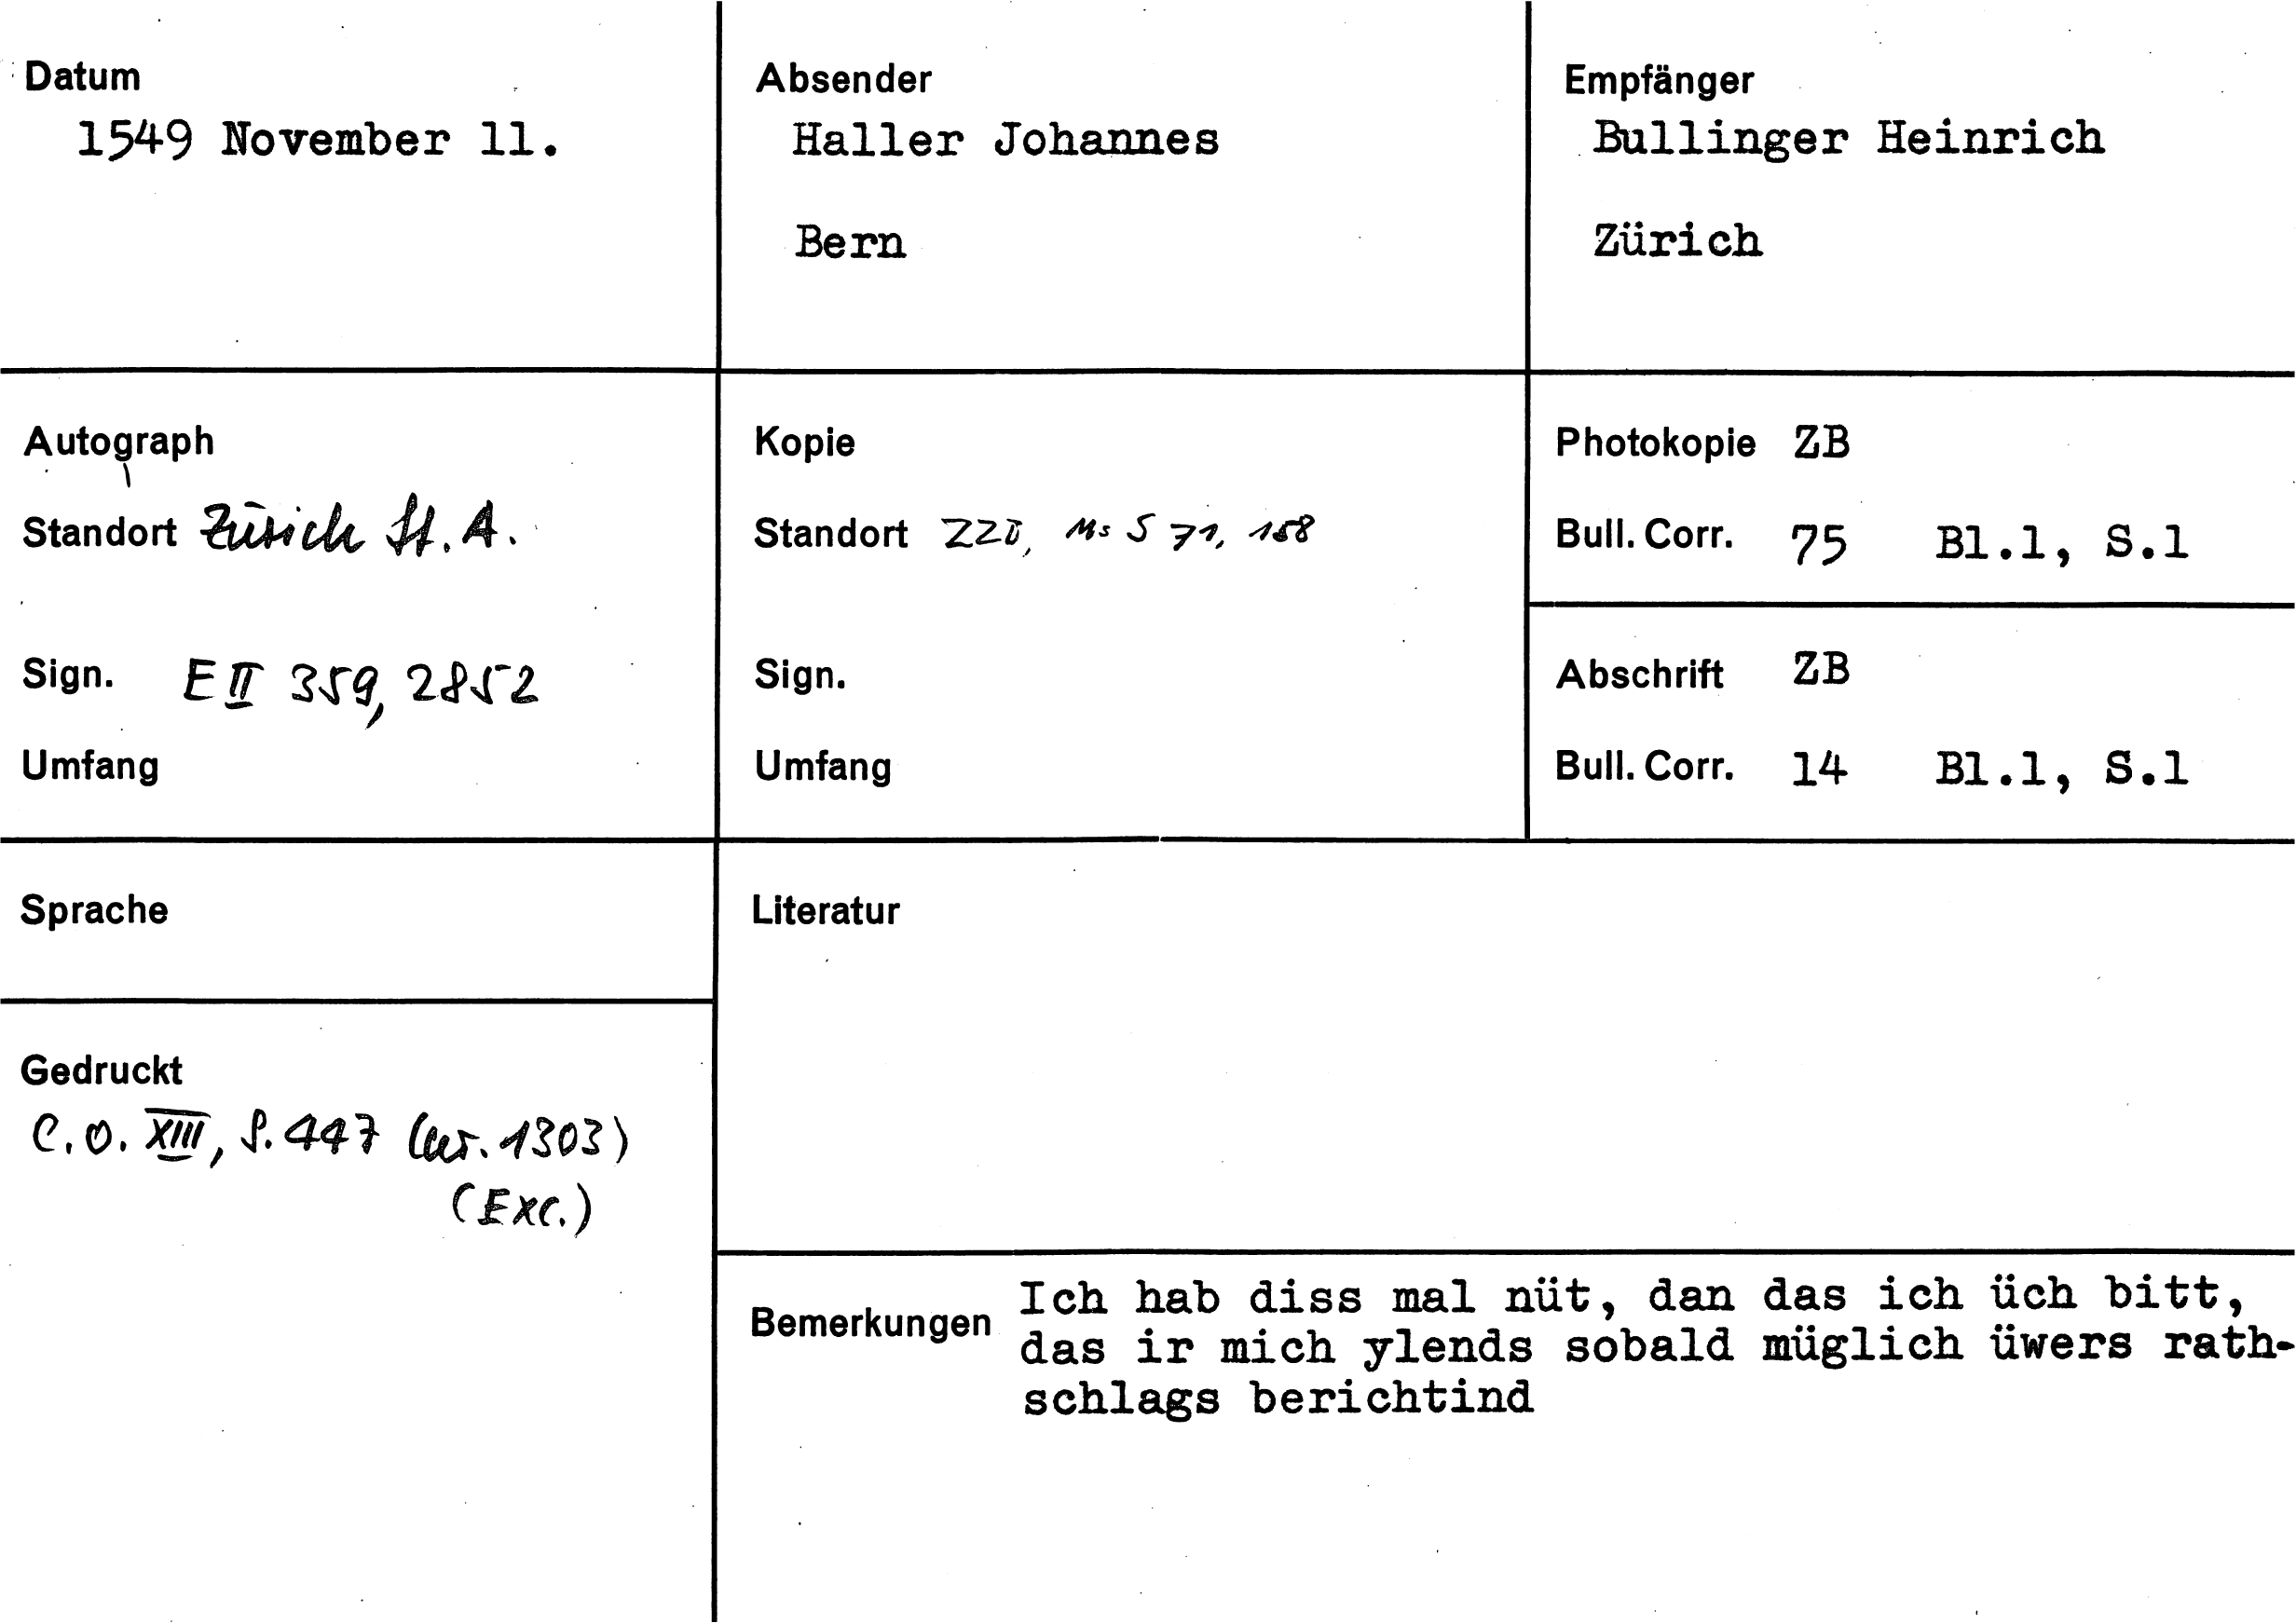 Datum
1549 November 11.
Absender
Haller Johannes
Bern
Empfänger
Bullinger Heinrich
Zürich
Autograph
Standort Zürich St. A.
Sign. E II 359, 2852
Umfang
Kopie
Standort ZZB, Ms S 71, 158
Sign.
Umfang
Photokopie ZB
Bull. Corr. 75 Bl.1, S.1
Abschrift ZB
Bull. Corr. 14 Bl.1, S.1
Sprache
Gedruckt
C.O. XIII, S. 447 (nr. 1303)
(Exc.)
Literatur
Bemerkungen Ich hab diss mal nüt, dan das ich üch bitt,
das ir mich ylends sobald müglich üwers rath-
schlags berichtind